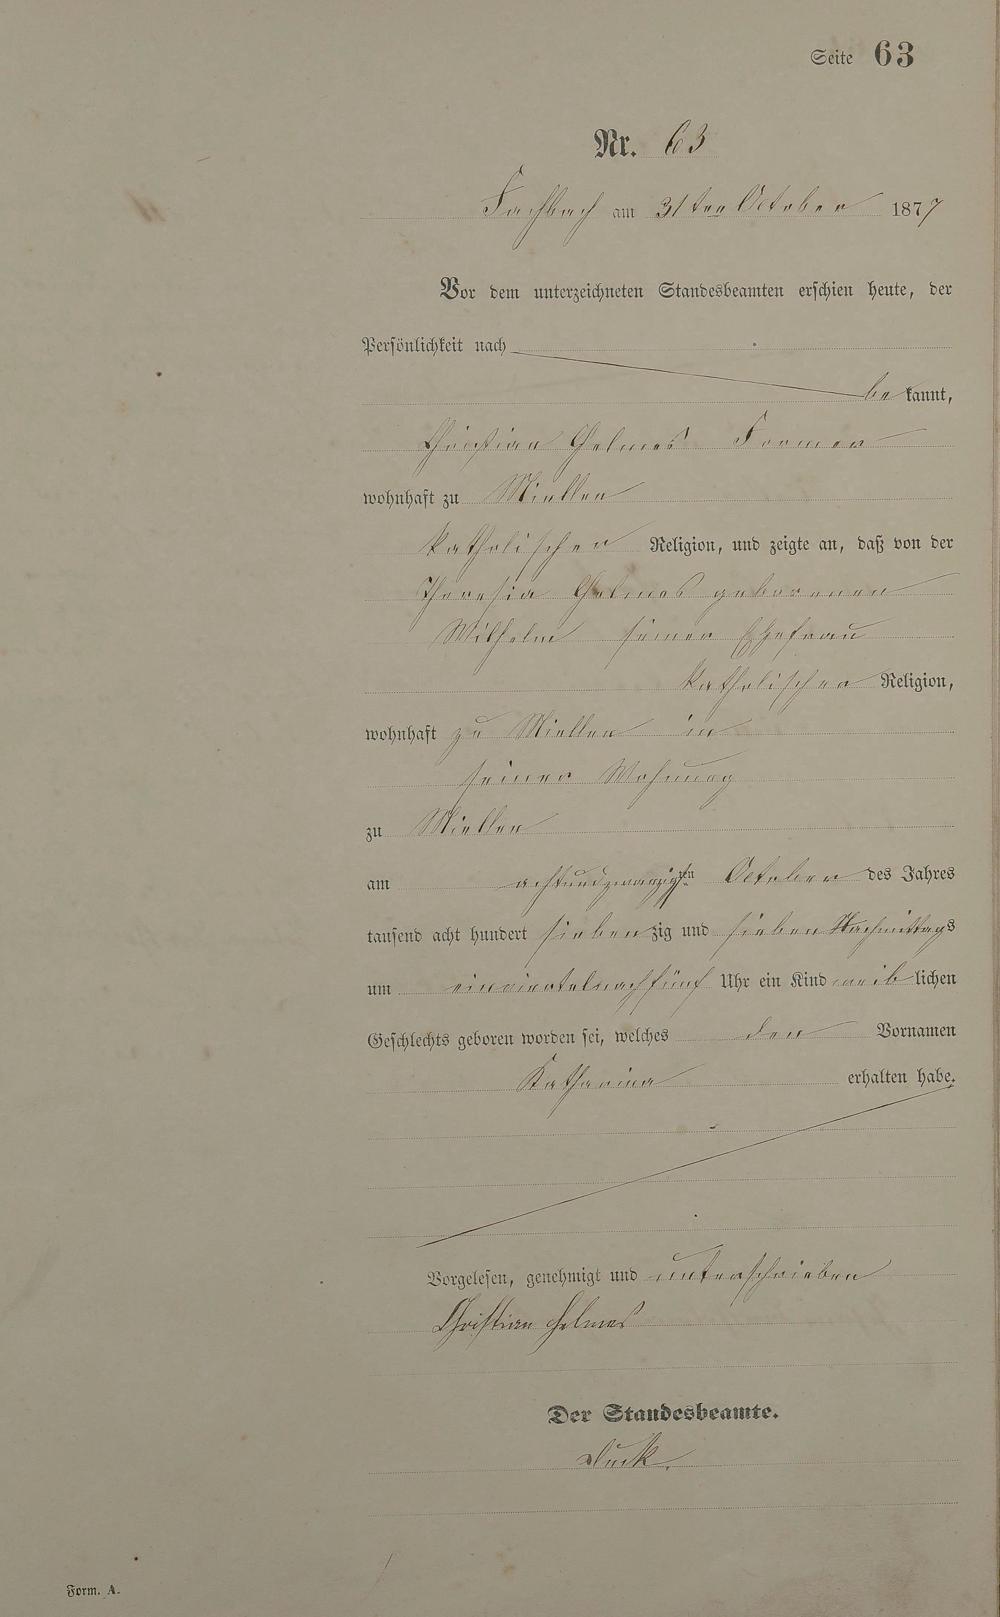 Seite 63
Nr. 63
Fachbach am 31ten October 1877
Vor dem unterzeichneten Standesbeamten erschien heute, der
Persönlichkeit nach
be kannt,
Christian Helmes Former
wohnhaft zu Miellen
katholischer Religion, und zeigte an, daß von der
Theresia Helmes geborenen
Wilhelm seiner Ehefrau
katholischer Religion,
wohnhaft zu Miellen in
seiner Wohnung
zu Miellen
am achtundzwanzigsten October des Jahres
tausend acht hundert siebenzig und sieben Nachmittags
um einviertelnachfünf Uhr ein Kind weiblichen
Geschlechts geboren worden sei, welches den Vornamen
Katharina erhalten habe.
Vorgelesen, genehmigt und unterschrieben
Christian Helmes
Der Standesbeamte.
Form. A.